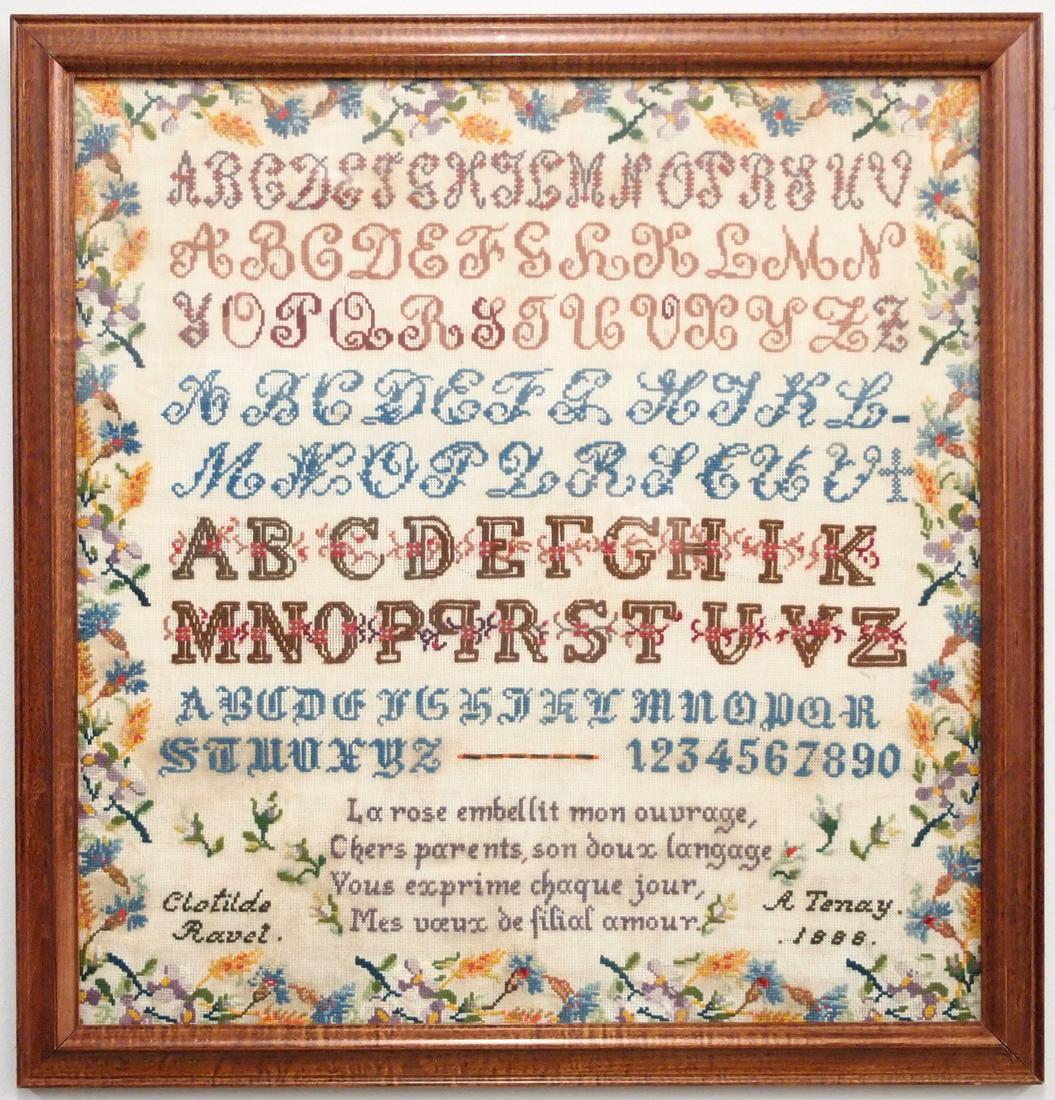 A B C D E F G H I L M N O P R S U V
A B C D E F G H K L M N
Y O P Q R S T U V X Y Z Z
A B C D E F G H I K L -
M N O P Q R S T U V †
A B C D E F G H I K
M N O P ꟼ R S T U V Z
A B C D E F G H I K L M N O P Q R
S T U V X Y Z 1234567890
La rose embellit mon ouvrage,
Chers parents, son doux langage
Vous exprime chaque jour,
Mes vœux de filial amour.
Clotilde
Ravet.
A Tenay.
.1888.